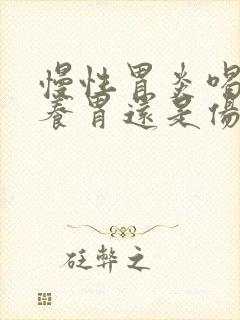 慢性胃炎喝
養胃還是傷
砭弊之